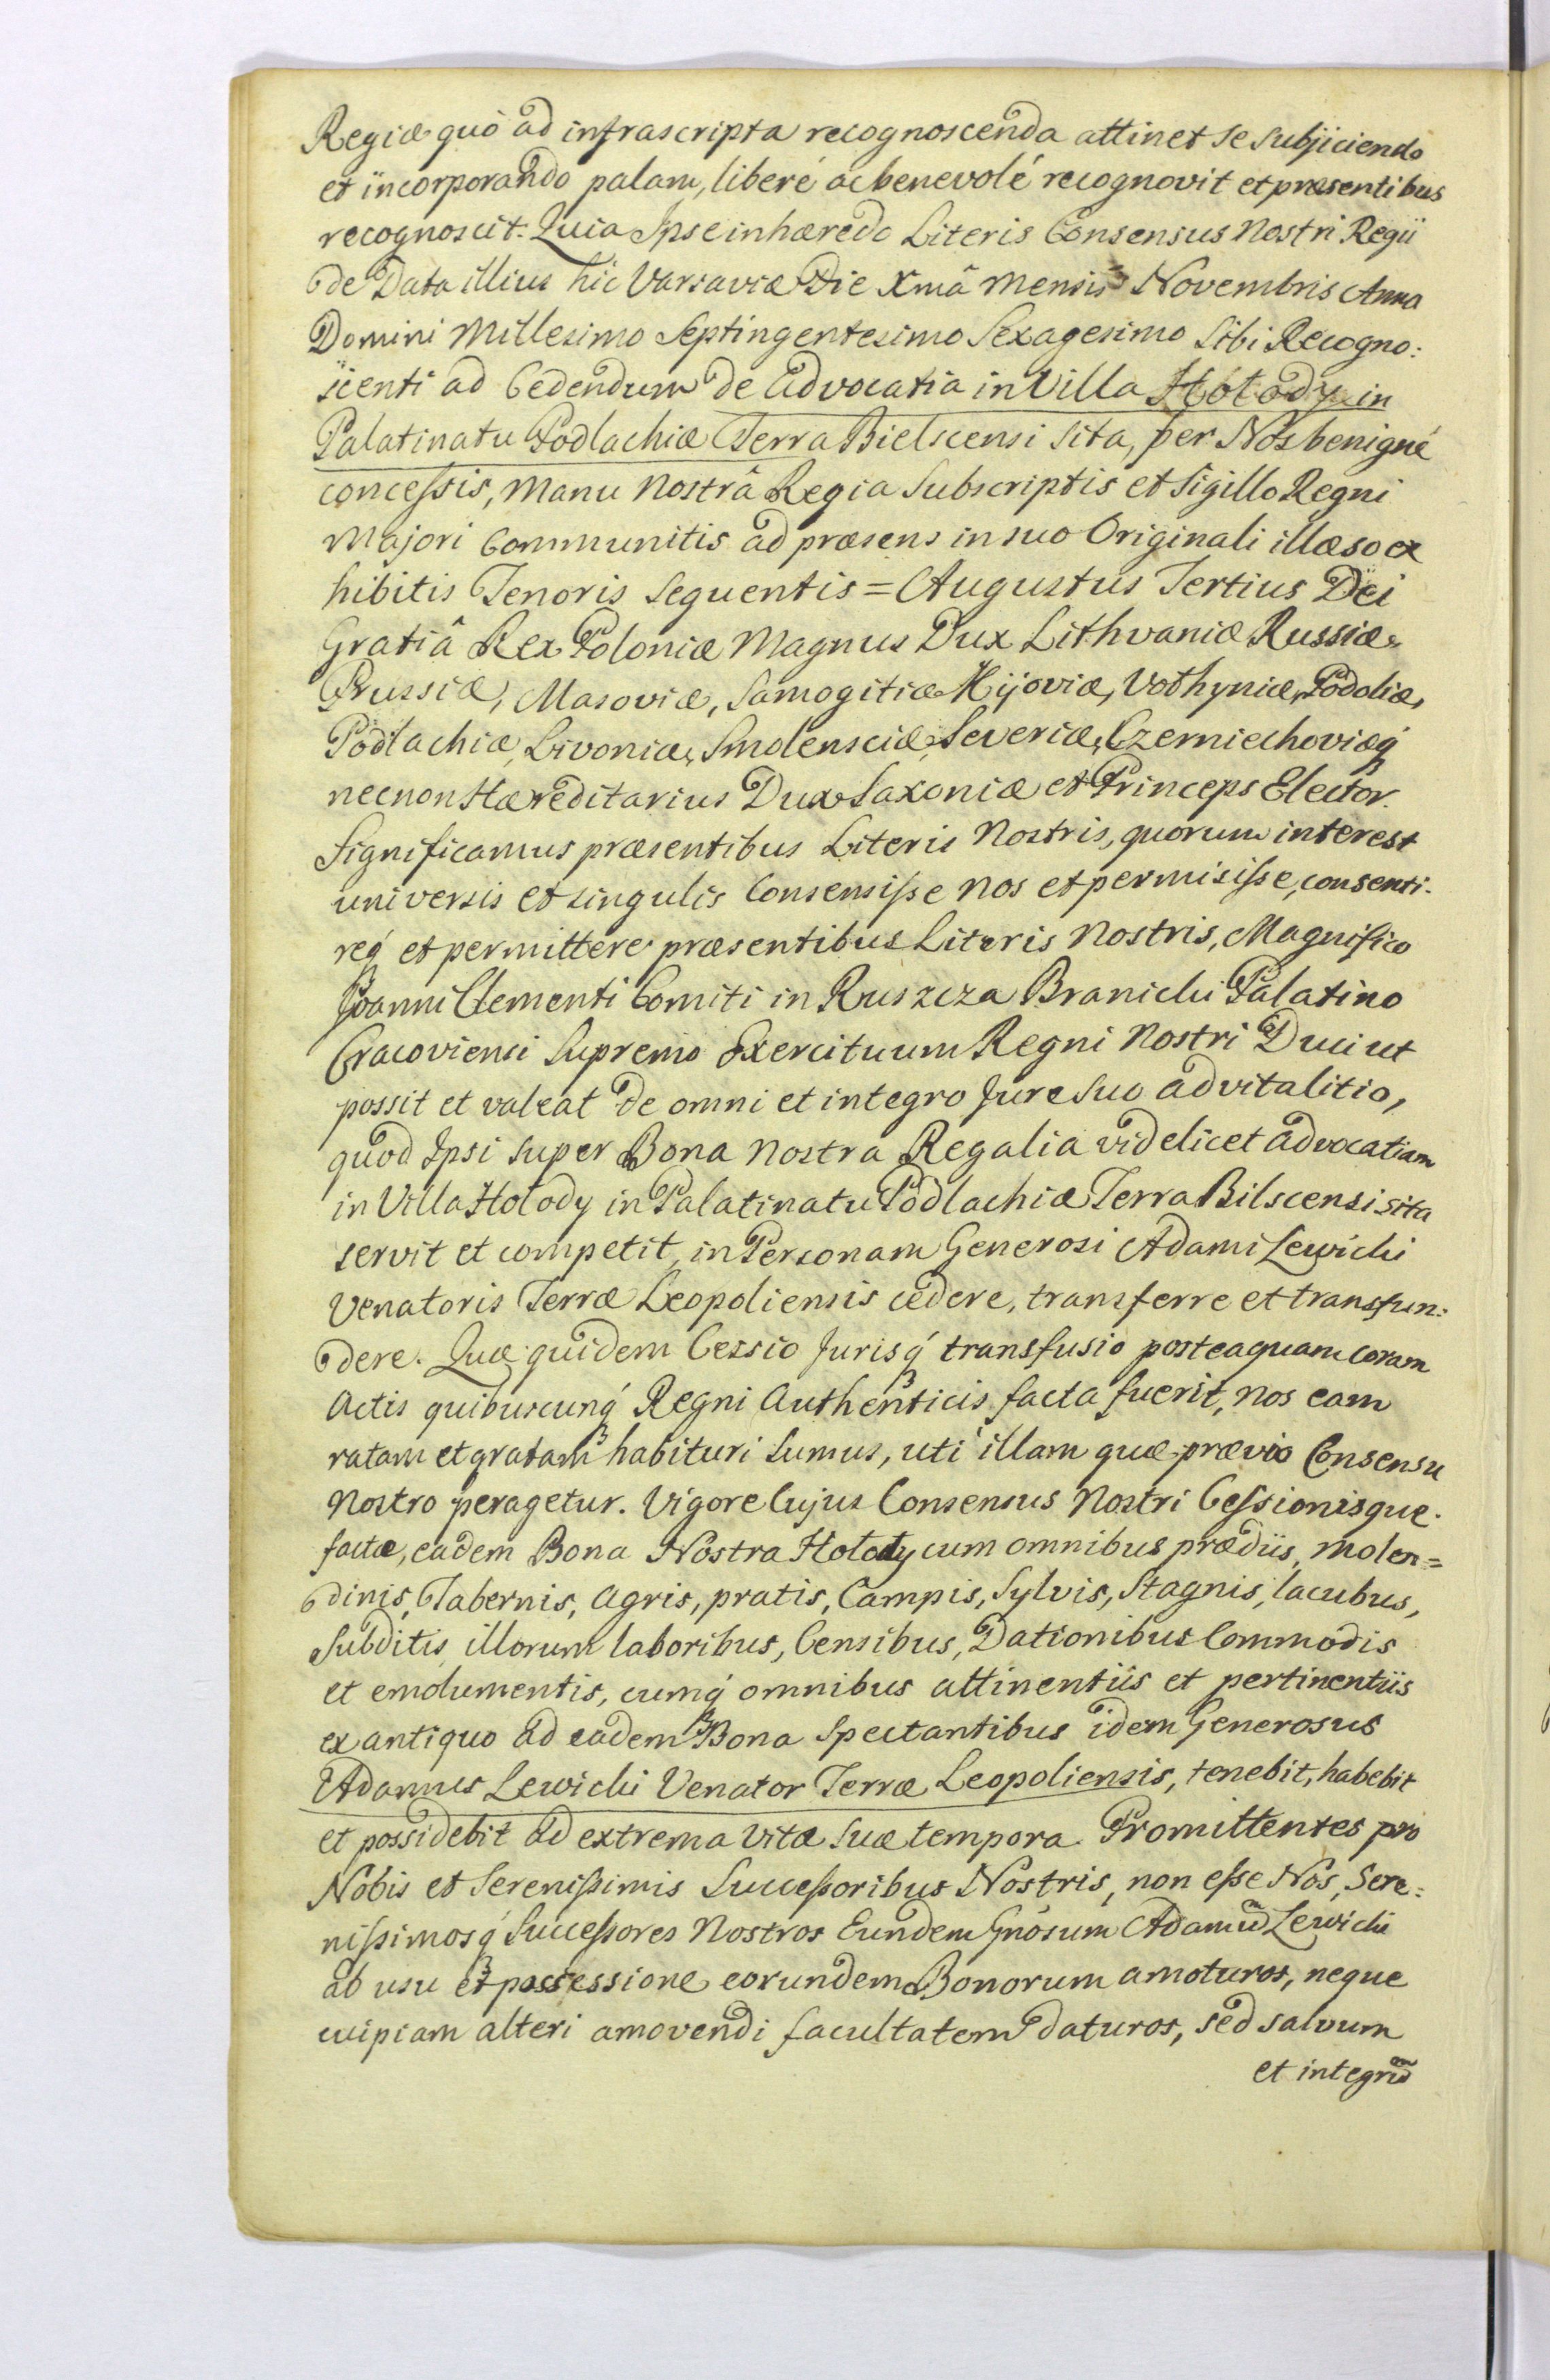 Regiæ quò ad infrascripta recognoscenda attinet se subjiciendo
et incorporando palam, liberé ac benevolé recognovit et præsentibus
recognoscit: Quia Ipse inhærendo Literis Consensus Nostri Regii
de Data illius hic Varsaviæ Die Xmâ Mensis Novembris Anno
Domini Millesimo Septingentesimo Sexagesimo Sibi Recogno:
scenti ad Cedendum de Advocatia in Villa Hołody in
Palatinatu Podlachiæ Terra Bielscensi Sita, per Nos benigné
concessis, Manu Nostrâ Regia Subscriptis et Sigillo Regni
Majori Communitis ad præsens in suo Originali illæso ex
hibitis Tenoris Sequentis = Augustus Tertius Dei
Gratiâ Rex Poloniæ Magnus Dux Lithvaniæ Russiæ,
Prussiæ, Masoviæ, Samogitiæ Kijoviæ, Vothyniæ, Podoliæ,
Podlachiæ, Livoniæ, Smolensciæ, Severiæ, Czerniechoviæq́
necnon Hæreditarius Dux Saxoniæ et Princeps Elector.
Significamus præsentibus Literis Nostris, quorum interest
universis et singulis Consensisse Nos et permisisse, consenti-
req́ et permittere præsentibus Literis Nostris, Magnifico
Joanni Clementi Comiti in Ruszcza Branicki Palatino
Cracoviensi Supremo Exercituum Regni Nostri Duci ut
possit et valeat de omni et integro Jure Suo advitalitio,
quod Ipsi super Bona Nostra Regalia videlicet advocatiam
in Villa Hołody in Palatinatu Podlachiæ Terra Bilscensi sita
servit et competit, in Personam Generosi Adami Lewicki
Venatoris Terræ Leopoliensis cedere, transferre et transfun:
dere. Quæ quidem Cessio Jurisq́ transfusio posteaquam coram
Actis quibuscunq́ Regni Authenticis facta fuerit, nos eam
ratam et gratam habituri sumus, uti illam quæ prævio Consensu
Nostro peragetur. Vigore Cujus Consensus Nostri Cessionisque
factæ, eadem Bona Nostra Hołody cum omnibus prædiis, molen=
dinis, Tabernis, Agris, pratis, Campis, Sylvis, Stagnis, lacubus,
Subditis, illorum laboribus, Censibus, Dationibus Commodis
et emolumentis, cumq́ omnibus attinentiis et pertinentiis
ex antiquo ad eadem Bona Spectantibus idem Generosus
Adamus Lewicki Venator Terræ Leopoliensis, tenebit, habebit
et possidebit ad extrema vitæ suæ tempora. Promittentes pro
Nobis et Serenissimis Successoribus Nostris, non esse Nos, Sere:
nissimosq́ Successores Nostros Eundem Gnosum Adamū Lewicki
ab usu et possessione eorundem Bonorum amoturos, neque
cuipiam alteri amovendi facultatem daturos, sed salvum
et integrū